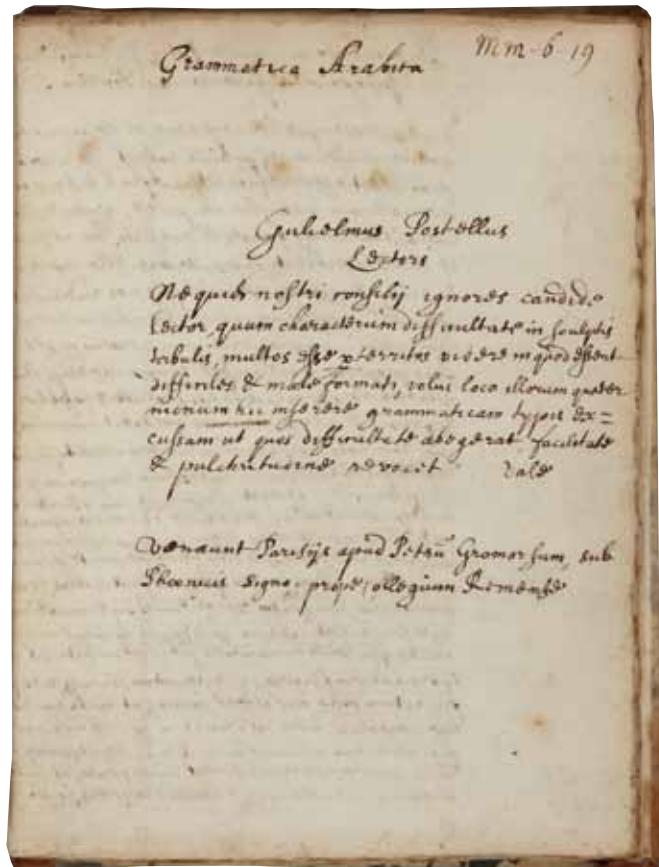 Grammatica Arabica
Mm-6-19
Gulielmus Postellus
Lectori
Ne quid nostri consilij ignores candide
lector, quum characterum difficultate in sculptis
tabulis, multos esse perterritos videre quod essent
difficiles & male formati, volui loco illorum quater
nionum hic inserere grammaticam typis ex=
cussam ut quos difficultate abegerat facilitate
& pulchritudine revocet Vale
Vaeneunt Parisijs apud Petrũ Gromorsum, sub
Phoenicis signo prope collegium Remense